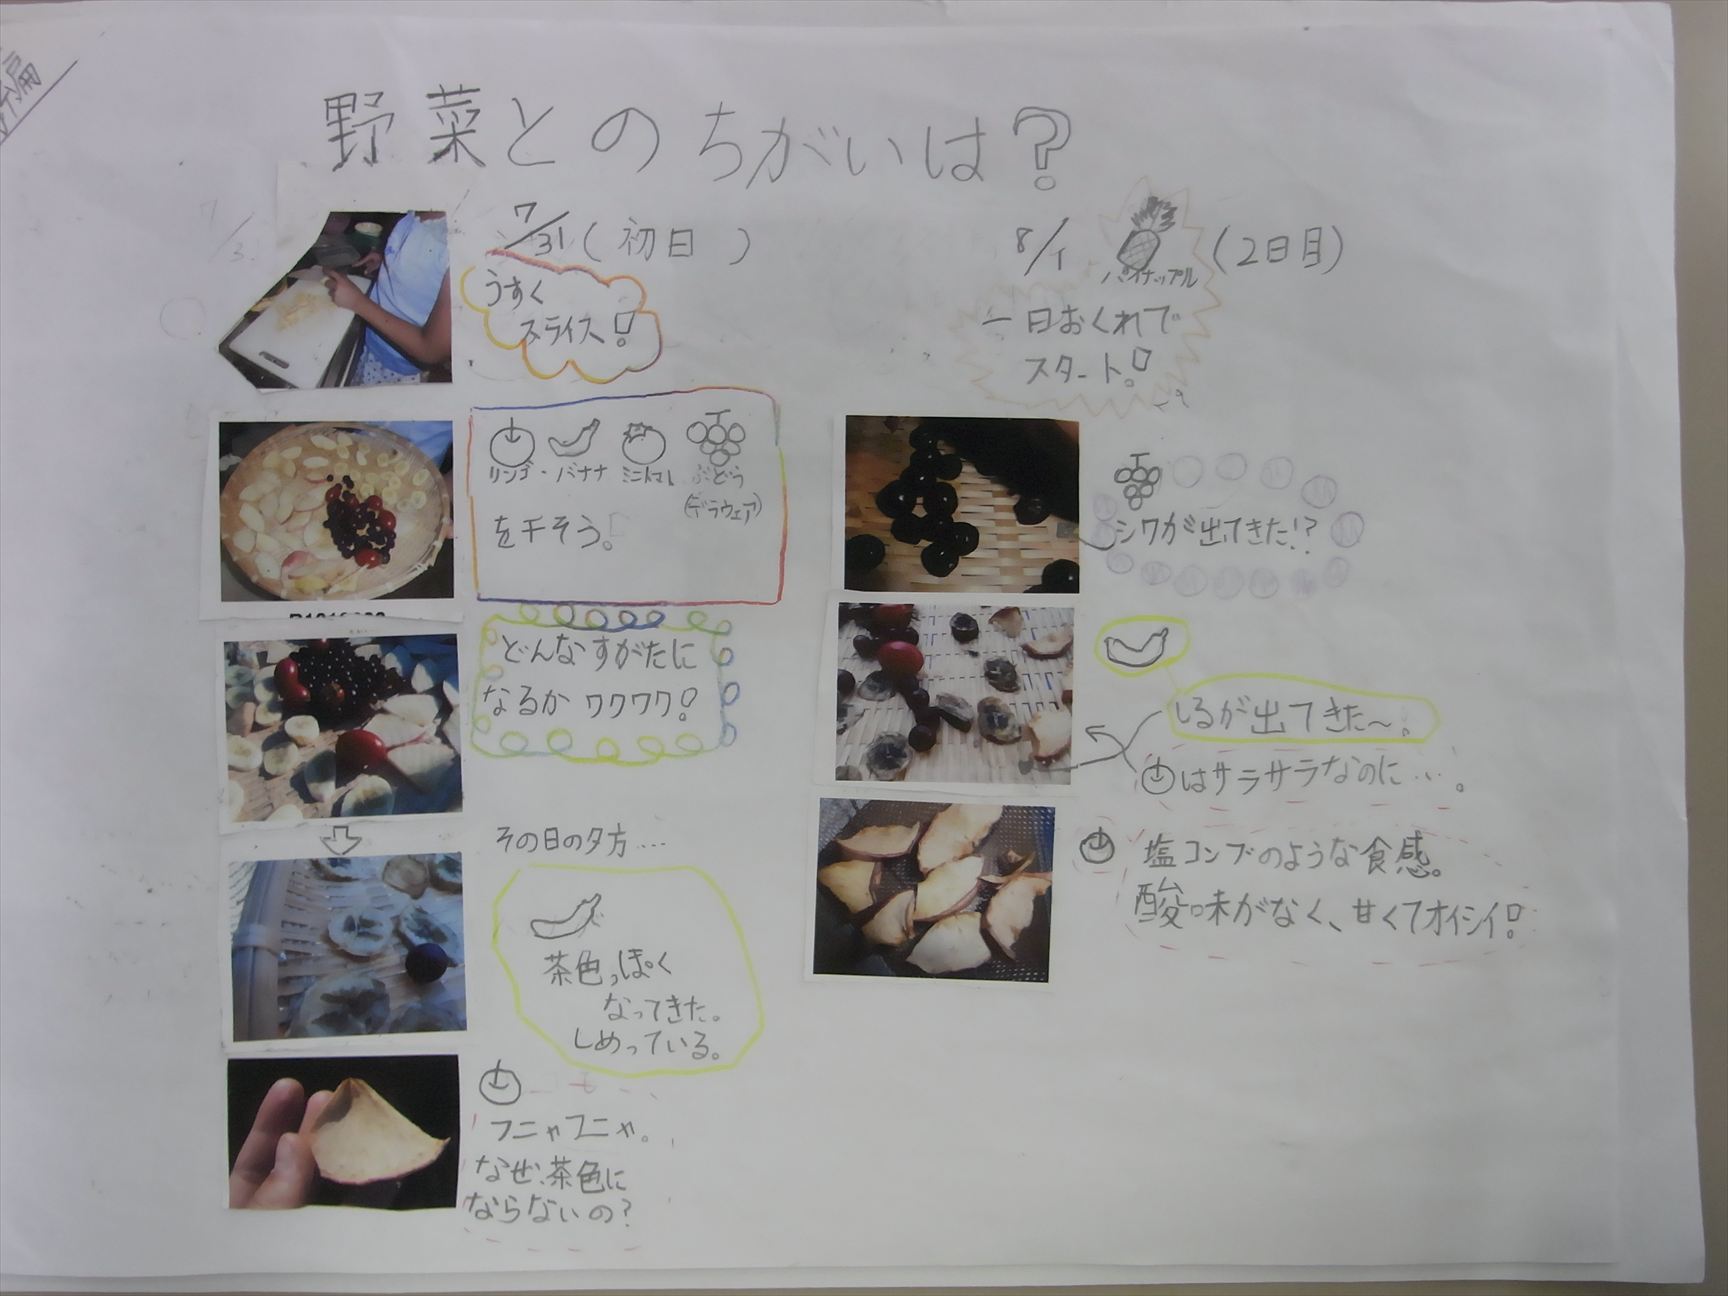 編
野菜とのちがいは?
7/31(初日)
うすく
スライス!
リンゴ・バナナ ミニトマト ぶどう
(デラウェア)
を干そう。
どんなすがたに
なるかワクワク!
その日の夕方…
茶色っぽく
なってきた。
しめっている。
フニャフニャ。
なぜ、茶色に
ならないの?
8/1 パイナップル (2日目)
一日おくれで
スタート!
シワが出てきた!?
しるが出てきた〜!
はサラサラなのに…。
塩コンブのような食感。
酸味がなく、甘くてオイシイ!